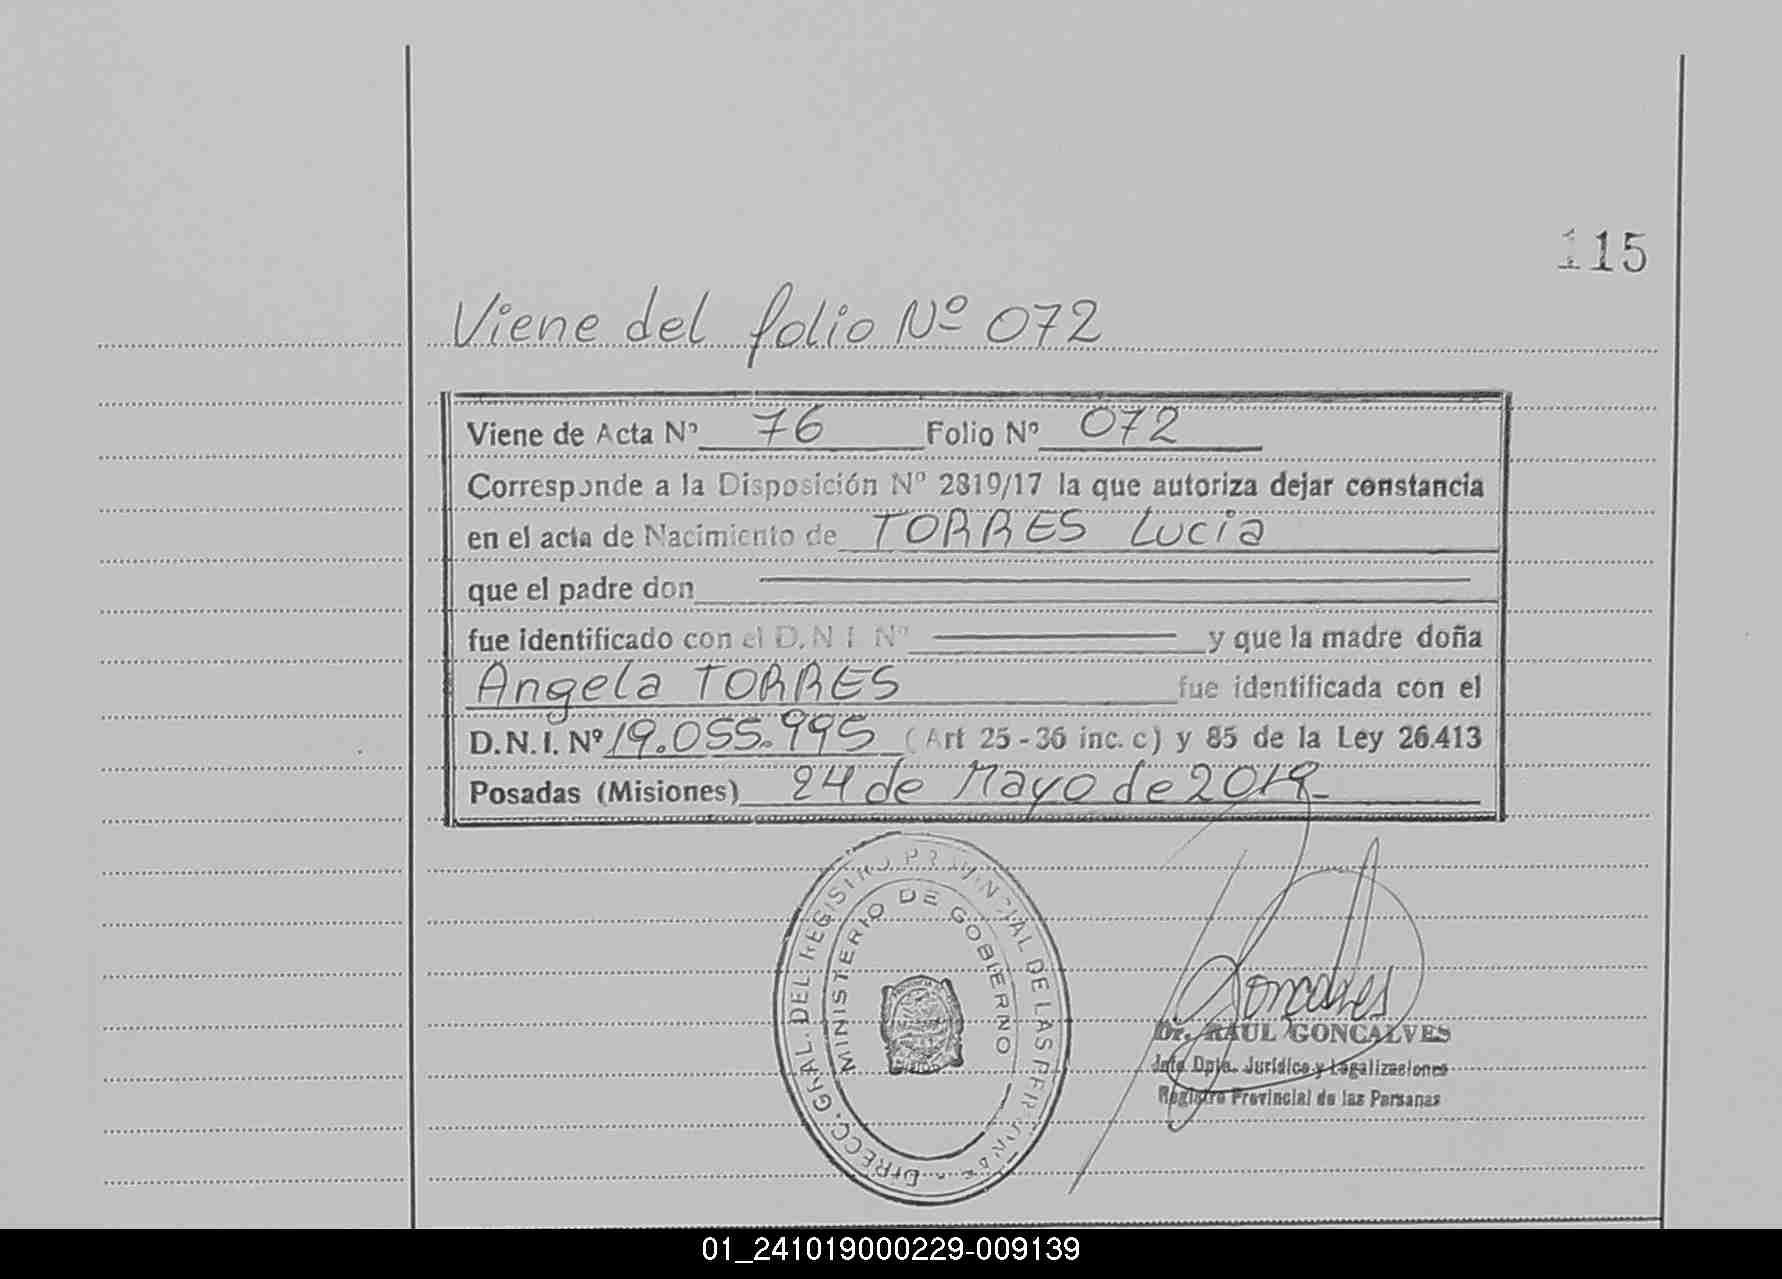 115
Viene del folio Nº 072
Viene de Acta Nº 76 Folio Nº 072
Corresponde a la Disposición Nº 2819/17 la que autoriza dejar constancia
en el acta de Nacimiento de TORRES Lucia
que el padre don
fue identificado con el D.N.I. Nº y que la madre doña
Angela TORRES fue identificada con el
D.N.I. Nº 19.055.995 (Art 25-36 inc. c) y 85 de la Ley 26.413
Posadas (Misiones) 24 de Mayo de 2019
DIRECC. GRAL. DEL REGISTRO PROVINCIAL DE LAS PERSONAS
MINISTERIO DE GOBIERNO
Goncalves
Dr. RAUL GONCALVES
Jefe Dpto. Jurídico y Legalizaciones
Registro Provincial de las Personas
01_241019000229-009139